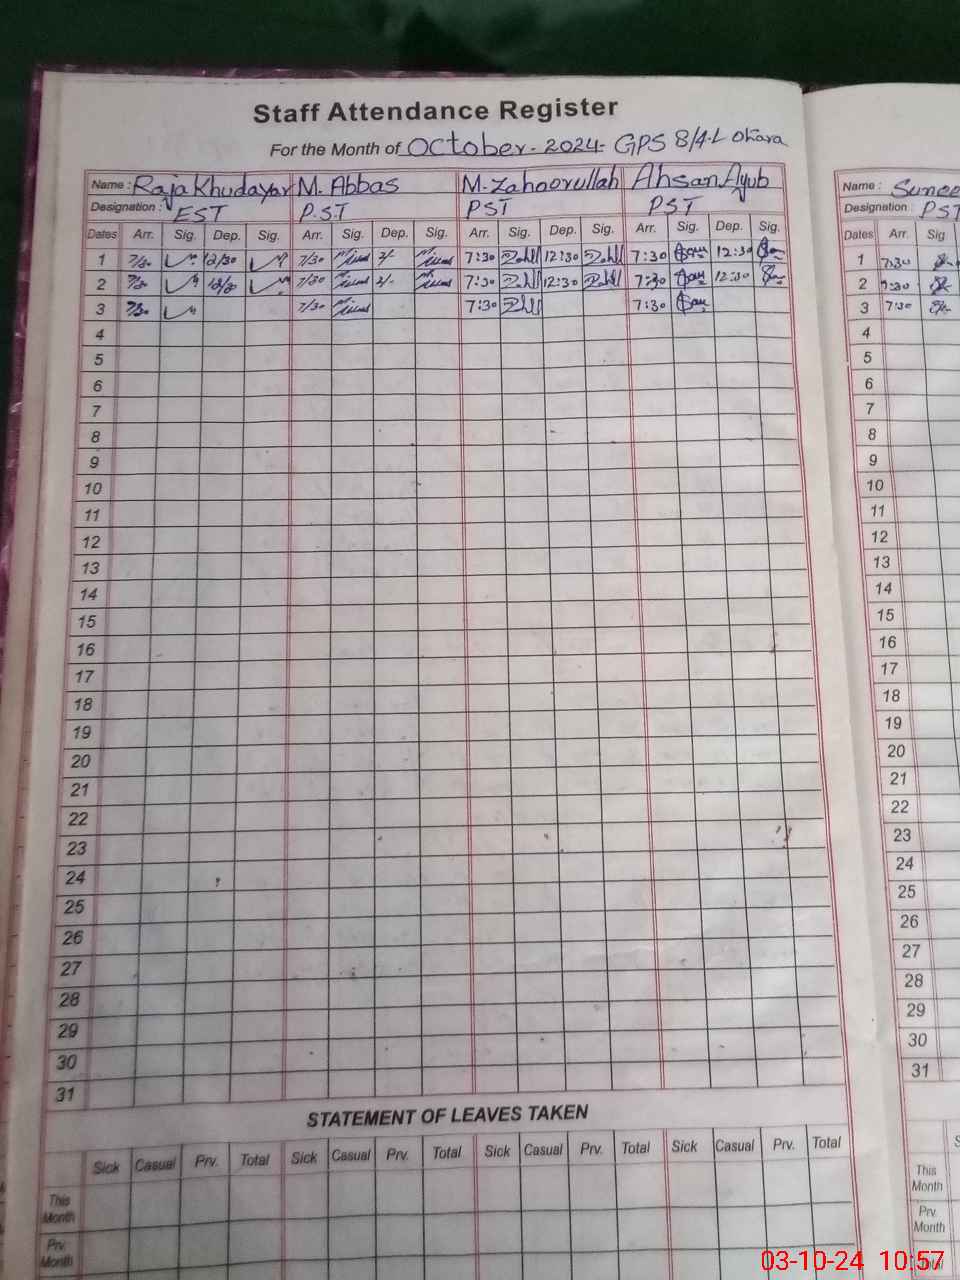 Staff Attendance Register
For the Month of October - 2024 - GPS 8/4-L Okara
Name : Raja Khudayar M. Abbas M. Zahoorullah Ahsan Ayub
Designation : EST P.S.T PST PST
Dates Arr. Sig. Dep. Sig. Arr. Sig. Dep. Sig. Arr. Sig. Dep. Sig. Arr. Sig. Dep. Sig.
1 7/30 12/30 7/30 7:30 12:30 7:30 12:30
2 7/30 12/30 7/30 7:30 12:30 7:30 12:30
3 7/30 7/30 7:30 7:30
4
5
6
7
8
9
10
11
12
13
14
15
16
17
18
19
20
21
22
23
24
25
26
27
28
29
30
31
STATEMENT OF LEAVES TAKEN
Sick Casual Prv. Total Sick Casual Prv. Total Sick Casual Prv. Total Sick Casual Prv. Total
This
Month
Prv.
Month
Name :
Designation : PST
Dates Arr. Sig
1 7:30
2 7:30
3 7:30
4
5
6
7
8
9
10
11
12
13
14
15
16
17
18
19
20
21
22
23
24
25
26
27
28
29
30
31
This
Month
Prv.
Month
Total
03-10-24 10:57